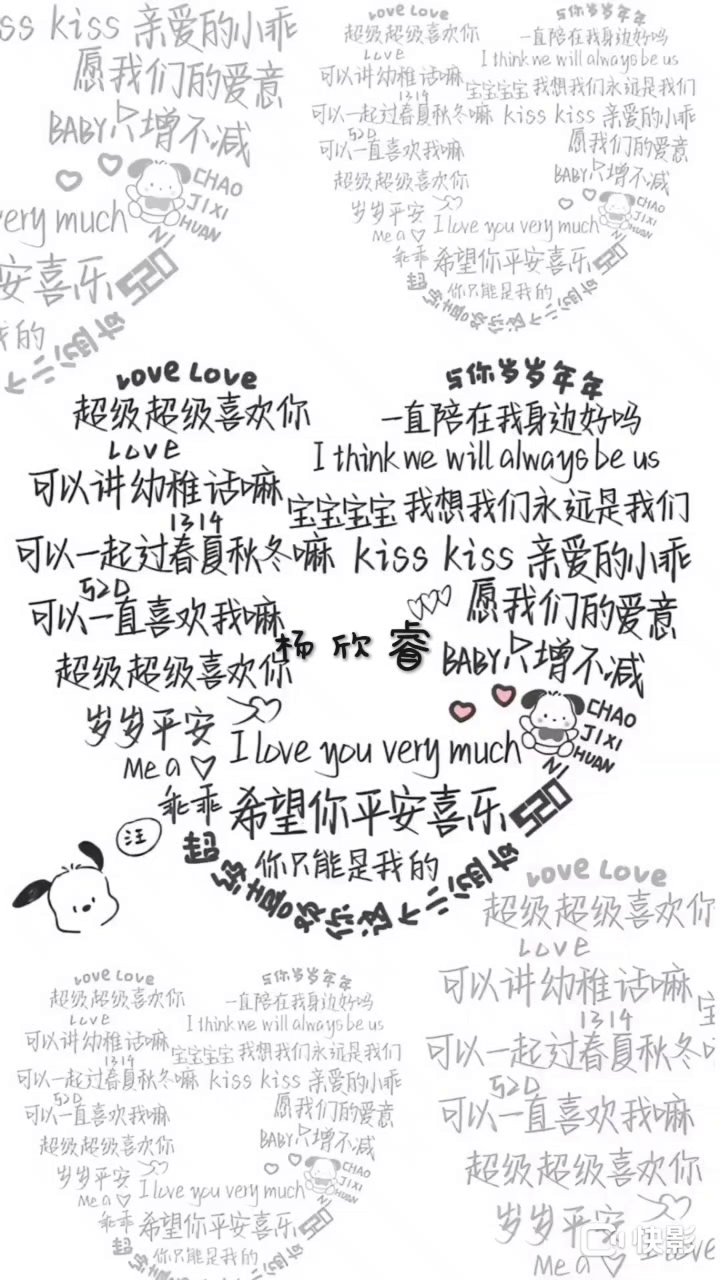 ss kiss 亲爱的小乖
愿我们的爱意
BABY只增不减
CHAO
JIXI
HUAN
NI
very much
安喜乐
520
的
Love Love
超级超级喜欢你
LOVE
可以讲幼稚话嘛
1314
可以一起过春夏秋冬嘛
520
可以一直喜欢我嘛
超级超级喜欢你
岁岁平安
Me a
乖乖
与你岁岁年年
一直陪在我身边好吗
I think we will always be us
宝宝宝宝 我想我们永远是我们
kiss kiss 亲爱的小乖
愿我们的爱意
BABY只增不减
CHAO
JIXI
HUAN
I love you very much
希望你平安喜乐
520
你只能是我的
Love Love
与你岁岁年年
超级超级喜欢你
一直陪在我身边好吗
LOVE
I think we will always be us
可以讲幼稚话嘛
宝宝宝宝 我想我们永远是我们
1314
可以一起过春夏秋冬嘛 kiss kiss 亲爱的小乖
520
可以一直喜欢我嘛
愿我们的爱意
杨欣睿
超级超级喜欢你
BABY只增不减
岁岁平安
CHAO
JIXI
HUAN
NI
I love you very much
Me a
乖乖 希望你平安喜乐
520
汪
你只能是我的
Love Love
与你岁岁年年
超级超级喜欢你
一直陪在我身边好吗
LOVE
I think we will always be us
可以讲幼稚话嘛
宝宝宝宝 我想我们永远是我们
1314
可以一起过春夏秋冬嘛 kiss kiss 亲爱的小乖
520
可以一直喜欢我嘛
愿我们的爱意
超级超级喜欢你
BABY只增不减
岁岁平安
CHAO
JIXI
HUAN
I love you very much
Me a
乖乖 希望你平安喜乐
520
你只能是我的
Love Love
超级超级喜欢你
LOVE
可以讲幼稚话嘛
宝
1314
可以一起过春夏秋冬
520
可以一直喜欢我嘛
超级超级喜欢你
岁岁平安
I love
Me a
快影